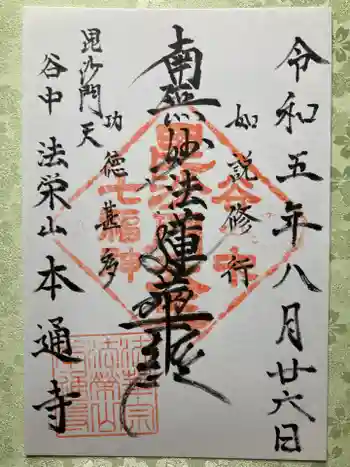 令和五年八月廿六日
如説修行
南無妙法蓮華経
功徳甚多
毘沙門天
谷中 法栄山 本通寺
谷中
七福神